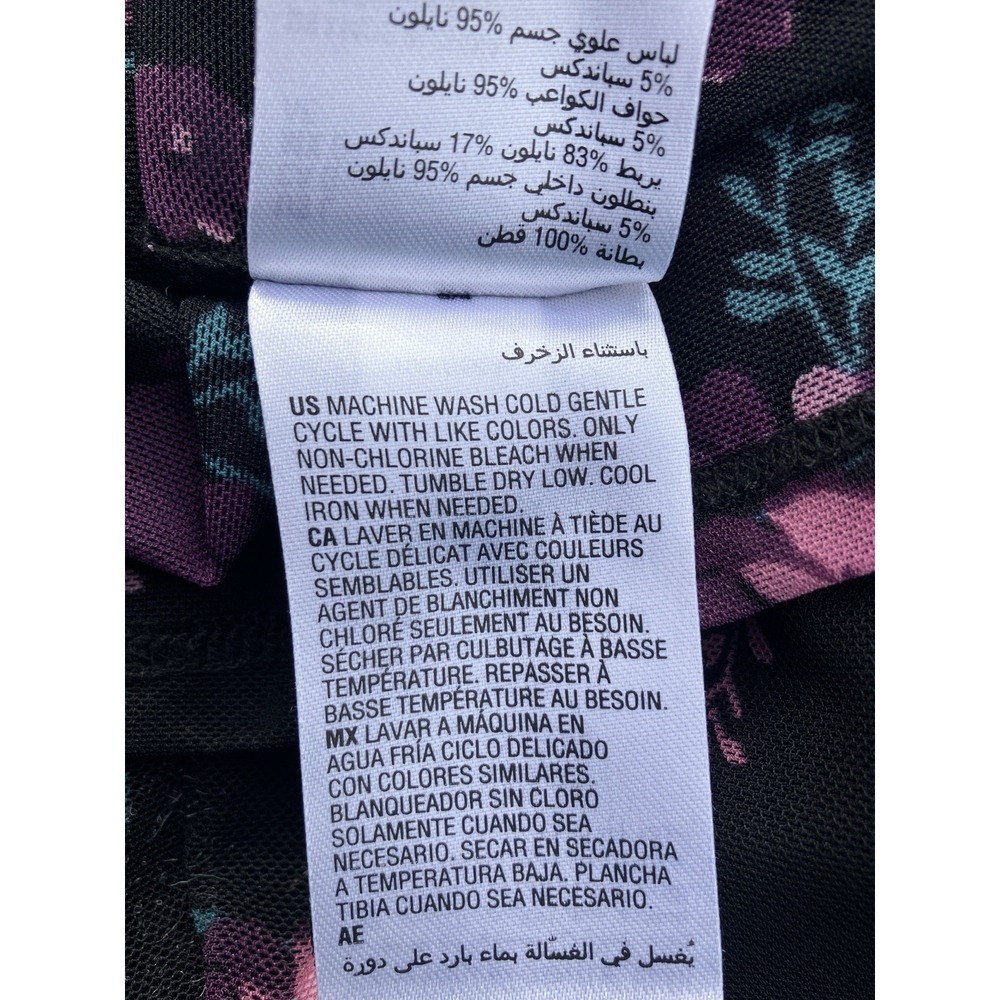 لباس علوي جسم 95% نايلون
5% سباندكس
حواف الكواعب 95% نايلون
5% سباندكس
يربط 83% نايلون 17% سباندكس
بنطلون داخلي جسم 95% نايلون
5% سباندكس
بطانة 100% قطن
باستثناء الزخرف
US MACHINE WASH COLD GENTLE
CYCLE WITH LIKE COLORS. ONLY
NON-CHLORINE BLEACH WHEN
NEEDED. TUMBLE DRY LOW. COOL
IRON WHEN NEEDED.
CA LAVER EN MACHINE À TIÈDE AU
CYCLE DÉLICAT AVEC COULEURS
SEMBLABLES. UTILISER UN
AGENT DE BLANCHIMENT NON
CHLORÉ SEULEMENT AU BESOIN.
SÉCHER PAR CULBUTAGE À BASSE
TEMPÉRATURE. REPASSER À
BASSE TEMPÉRATURE AU BESOIN.
MX LAVAR A MÁQUINA EN
AGUA FRÍA CICLO DELICADO
CON COLORES SIMILARES.
BLANQUEADOR SIN CLORO
SOLAMENTE CUANDO SEA
NECESARIO. SECAR EN SECADORA
A TEMPERATURA BAJA. PLANCHA
TIBIA CUANDO SEA NECESARIO.
AE
يُغسل في الغسّالة بماء بارد على دورة